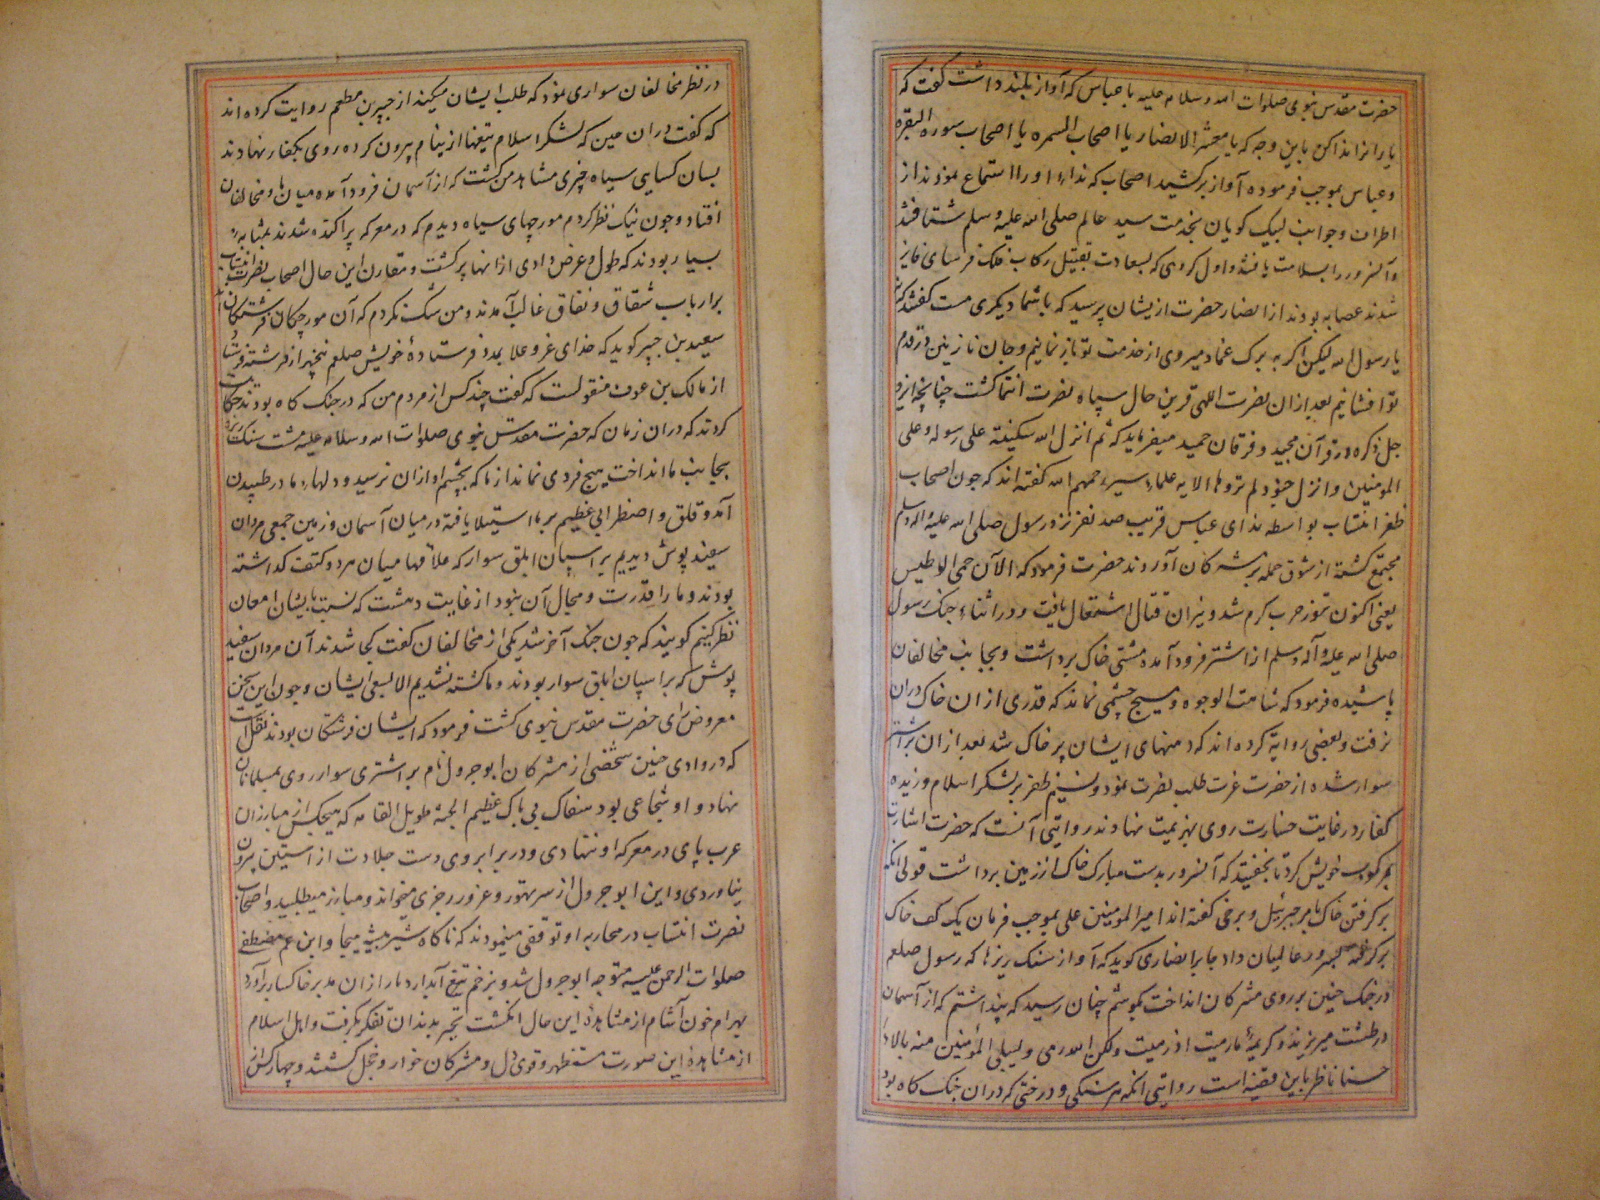 حضرت مقدس نبوی صلوات الله و سلامه علیه با عباس که آواز بلند داشت کفت که
یارانرا ندا کن باین وجه که یا معشر الانصار یا اصحاب السمره یا اصحاب سوره البقره
و عباس بموجب فرموده آواز برکشید اصحاب که نداء او را استماع نمودند از
اطراف و جوانب لبیک کویان بخدمت سید عالم صلی الله علیه و سلم شتافتند
و آنسرور را بسلامت یافتند و اول کروهی که بسعادت تقبیل رکاب فلک فرسای فایز
شدند عصابه بودند از انصار حضرت از ایشان پرسید که با شما دیکری هست کفتند که
یا رسول الله لیکن اکر به برک غماد میروی از خدمت تو باز نمانیم و جان نازنین در قدم
تو افشانیم بعد از ان نصرت اللهی قرین حال سپاه نصرت انتما کشت چنانچه ایزد
جل ذکره در قرآن مجید و فرقان حمید میفرماید که ثم انزل الله سکینته علی رسوله و علی
المومنین و انزل جنودا لم تروها الایه علماء سیر رحمهم الله کفته اند که چون اصحاب
ظفر انتساب بواسطه ندای عباس قریب صد نفر نزد رسول صلی الله علیه و اله و سلم
مجتمع کشته از شوق حمله بر مشرکان آوردند حضرت فرمود که الآن حمی الوطیس
یعنی اکنون تنور حرب کرم شد و نیران قتال اشتعال یافت و در اثناء جنک رسول
صلی الله علیه و آله و سلم از اشتر فرود آمده مشتی خاک برداشت و بجانب مخالفان
پاشیده فرمود که شاهت الوجوه و هیچ چشمی نماند که قدری از ان خاک دران
نرفت و بعضی روایة کرده اند که دهنهای ایشان پر خاک شد بعد از ان بر اشتر
سوار شده از حضرت عزت طلب نصرت نمود و نسیم ظفر بر لشکر اسلام وزیده
کفار در غایت خسارت روی بهزیمت نهادند و روایتی آنست که حضرت اشارت
بمرکوب خویش کرد تا بخفتید که آنسرور بدست مبارک خاک از زمین برداشت قولی آنکه
بر کرفتن خاک بامر جبرئیل و برخی کفته اند امیر المومنین علی بموجب فرمان یک کف خاک
برکرفته بسرور عالمیان داد جابر انصاری کوید که آواز سنک ریزها که رسول صلعم
در جنک حنین بر روی مشرکان انداخت بکوشم چنان رسید که پنداشتم که از آسمان
در طشت میریزند و کریمۀ مارمیت اذ رمیت ولکن الله رمی و لیبلی المؤمنین منه بلاء
حسنا ناظر باین قضیه است روایتی آنکه هر سنکی و درختی که دران جنک کاه بود
در نظر مخالفان سواری نمود که طلب ایشان میکند از جبیر بن مطعم روایت کرده اند
که کفت دران حین که لشکر اسلام تیغها از نیام بیرون کرده روی بکفار نهادند
بسان کسایی سیاه چیزی مشاهد من کشت که از آسمان فرود آمده میان ما و مخالفان
افتاد و چون نیک نظر کردم مورچهای سیاه دیدم که در معرکه پراکنده شدند بمثابه
بسیار بودند که طول و عرض وادی از انها پر کشت و مقارن این حال اصحاب نصرت انتساب
بر ارباب شقاق و نفاق غالب آمدند و من شک نکردم که آن مورچکان فرشتکان اند
سعید بن جبیر کوید که خدای عز و علا بمدد فرستادهٔ خویش صلعم پنجهزار فرشته فرستاد
از مالک بن عوف منقولست که کفت چند کس از مردم من که در جنک کاه بودند حکایت
کردند که دران زمان که حضرت مقدس نبوی صلوات الله و سلامه علیه مشت سنک ریزه
بجانب ما انداخت هیچ فردی نماند از ما که بچشم او ازان نرسید و دلهاء ما در طپیدن
آمد و قلق و اضطرابی عظیم بر ما استیلا یافته در میان آسمان و زمین جمعی مردان
سفید پوش دیدیم بر اسپان ابلق سوار که علاقها میان هر دو کتف کذاشته
بودند و ما را قدرت و مجال آن نبود از غایت دهشت که نسبت بایشان امعان
نظر کنیم کویند که چون جنک آخر شد یکی از مخالفان کفت کجا شدند آن مردان سفید
پوش که بر اسپان ابلق سوار بودند و ما کشته نشدیم الا بسعی ایشان و چون این سخن
معروض رای حضرت مقدس نبوی کشت فرمود که ایشان فرشتکان بودند نقلست
که در وادی حنین شخصی از مشرکان ابو جرول نام بر اشتری سوار روی بمسلمانان
نهاد و او شجاعی بود سفاک بی باک عظیم الجثه طویل القامه که هیچکس از مبارزان
عرب پای در معرکه او ننهادی و در برابر وی دست جلادت از آستین بیرون
نیاوردی و این ابو جرول از سر تهور و غرور رجزی میخواند و مبارز میطلبید و اصحاب
نصرت انتساب در محاربه او توقفی مینمودند که ناکاه شیر بیشه هیجا و ابن عم مصطفی
صلوات الرحمن علیه متوجه ابو جرول شد و بزخم تیغ آبدار دمار از ان مدبر خاکسار برآورد
بهرام خون آشام از مشاهدۀ این حال انکشت تحیر بدندان تفکر بکرفت و اهل اسلام
از مشاهدۀ این صورت مستظهر و قوی دل و مشرکان خوار و خجل کشتند و چهار کس از